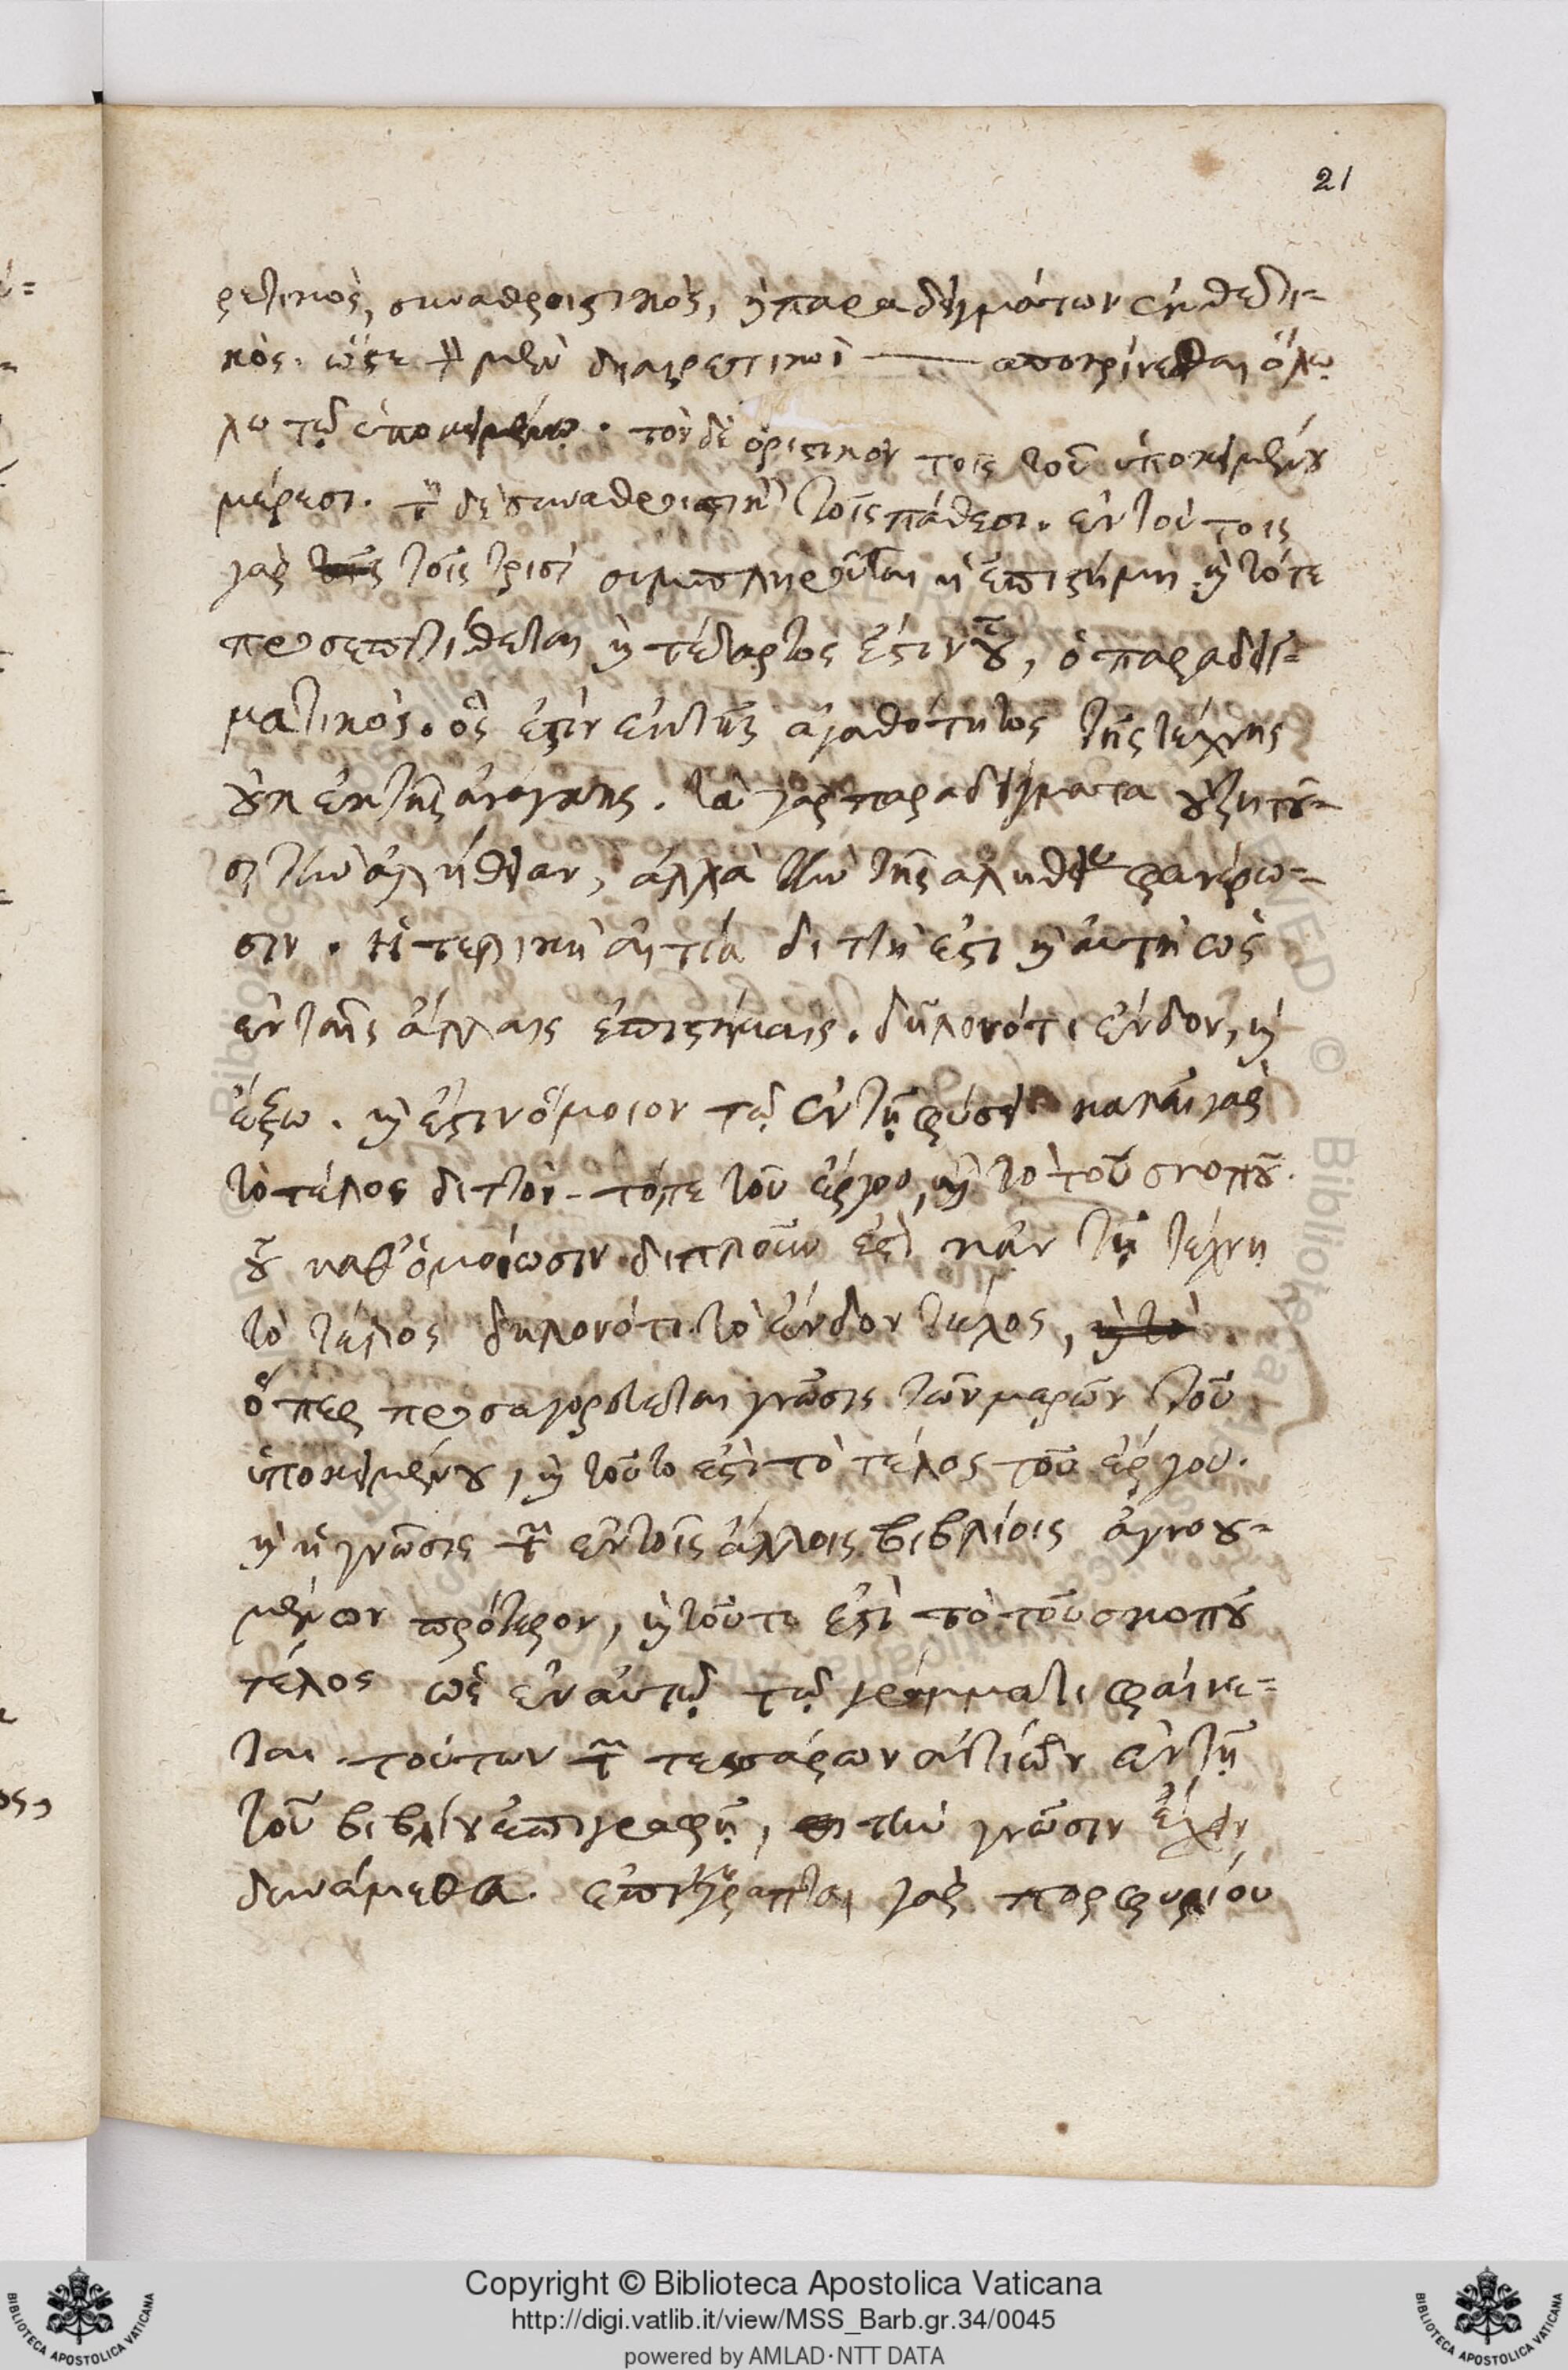 21
ρετικὸς, συναθροιστικὸς, καὶ παραδειγμάτων ἐκθετι-
κός. ὥστε τὸν μὲν διαιρετικὸν — αποκρίνεσθαι ὅλῳ
λω τῷ ὑποκειμένῳ. τὸν δὲ ὁριστικὸν τοῖς τοῦ ὑποκειμένου
μέρεσι. τὸν δὲ συναθροιστικὸν τοῖς πάθεσι. ἐν τούτοις
γὰρ τοῖς τρισὶ συμπληροῦται ἡ ἐπιστήμη καὶ τότε
προσεπιτίθεται καὶ τέταρτος ἔστιν οὗτος, ὁ παραδει-
ματικός. ὃς ἐστὶν ἐκ τῆς ἀγαθότητος τῆς τέχνης
οὐκ ἐκ τῆς ἀνάγκης. τὰ γὰρ παραδείγματα οὐ ζητοῦ-
σι τὴν ἀλήθειαν, ἀλλὰ τὴν τῆς αληθείας φανέρω-
σιν. Η τελικὴ αἰτία διττή ἐστι καὶ αὐτὴ ὡς
ἐν ταῖς ἄλλαις ἐπιστήμαις. δηλονότι ἔνδον, καὶ
ἔξω. καὶ ἔστιν ὅμοιον τῷ ἐν τῇ φύσει κακεῖ γὰρ
τὸ τέλος διττὸν τό, τε τοῦ ἔργου, καὶ τὸ τοῦ σκοποῦ.
οὗ καθ' ὁμοίωσιν διπλοῦν ἐστὶ κἀν τῇ τέχνῃ
τὸ τέλος δηλονότι τὸ ἔνδον τέλος,
ὅπερ προσαγορεύεται γνῶσις τῶν μερῶν τοῦ
ὑποκειμένου, καὶ τοῦτο ἐστὶ τὸ τέλος τοῦ ἔργου.
καὶ ἡ γνῶσις τῶν ἐν τοῖς ἄλλοις βιβλίοις ἀγνοου-
μένων πρότερον, καὶ τοῦτο ἐστὶ τὸ τοῦ σκοποῦ
τέλος ὡς ἐν αὐτῷ τῷ γράμματι φαίνε-
ται. τούτων τῶν τεσσάρων αἰτιῶν ἐν τῇ
τοῦ βιβλίου ἐπιγραφῇ, τὴν γνῶσιν ἔχειν
δυνάμεθα. ἐπιγέγραπται γὰρ πορφυρίου
Copyright © Biblioteca Apostolica Vaticana
http://digi.vatlib.it/view/MSS_Barb.gr.34/0045
powered by AMLAD·NTT DATA